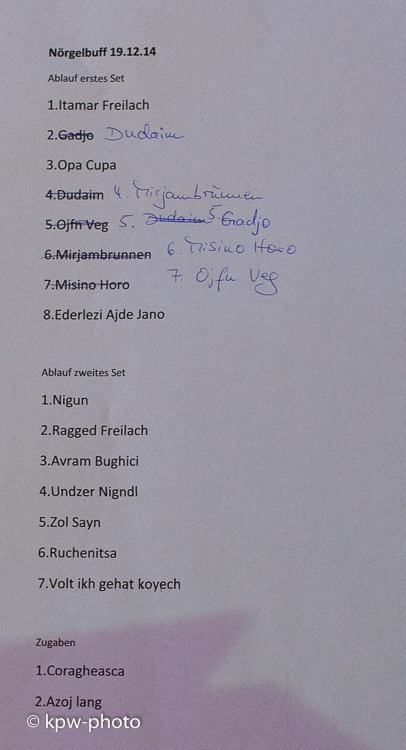 Nörgelbuff 19.12.14
Ablauf erstes Set
1.Itamar Freilach
2.Gadjo Dudaim
3.Opa Cupa
4.Dudaim 4. Mirjambrunnen
5.Ojfn Veg 5. Dudaim 5 Gadjo
6.Mirjambrunnen 6. Misino Horo
7.Misino Horo 7. Ojfn Veg
8.Ederlezi Ajde Jano
Ablauf zweites Set
1.Nigun
2.Ragged Freilach
3.Avram Bughici
4.Undzer Nigndl
5.Zol Sayn
6.Ruchenitsa
7.Volt ikh gehat koyech
Zugaben
1.Coragheasca
2.Azoj lang
© kpw-photo